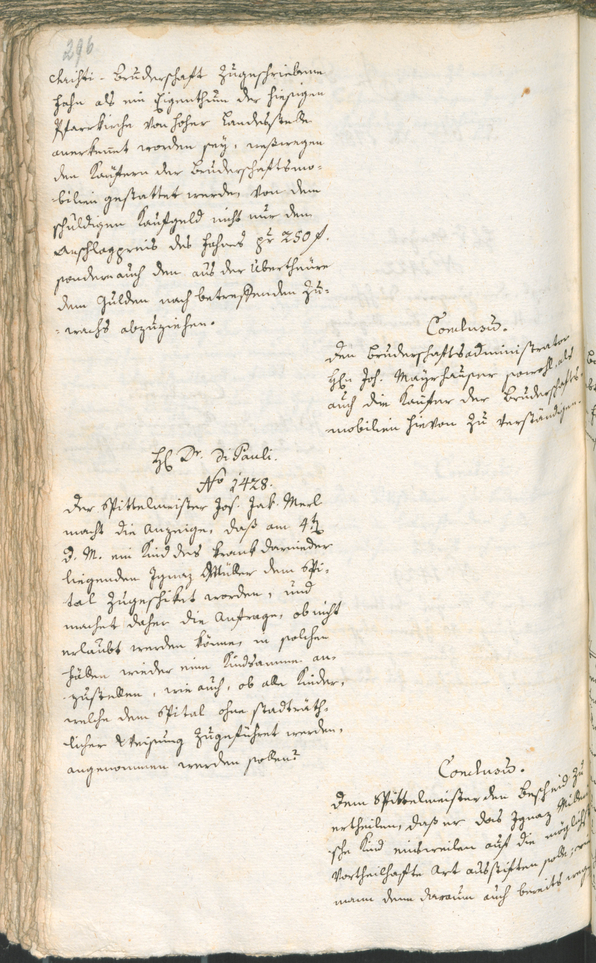 296
Christi-Bruderschaft zugeschriebene
Fahn als ein Eigenthum der hiesigen
Pfarrkirche von hoher Landesstelle
anerkennt worden sey, weßwegen
den Käufern der Bruderschaftsmo-
bilien gestattet werde, von dem
schuldigen Kaufgeld nicht nur den
Anschlagpreis des Fahnes pr 250 f.
sondern auch den aus der Übertheure
dem Gulden nach betreffenden Zu-
wachs abzuziehen.
Conclusum.
Den Bruderschaftsadministrator
H. Joh. Mayrhauser sowohl, als
auch die Käufer der Bruderschafts-
mobilien hievon zu verständigen.
H. Dr. Di Pauli.
No 1428.
Der Spittelmeister Jos. Jak. Merl
macht die Anzeige, daß am 4t
d. M. ein Kind des krank darnieder
liegenden Ignaz Müller dem Spi-
tal zugeschickt worden, und
machet daher die Anfrage, ob nicht
erlaubt werden könne, in solchen
Fällen wieder eine Kindsamme an-
zustellen, wie auch, ob alle Kinder,
welche dem Spital ohne stadträth-
licher Weisung zugeführet werden,
angenommen werden sollen?
Conclusum.
Dem Spittelmeister den Bescheid zu
ertheilen, daß er das Ignaz Müller
sche Kind einsweilen auf die möglichst
vortheilhafte Art ausstiften solle,
mann denn darum auch bereits